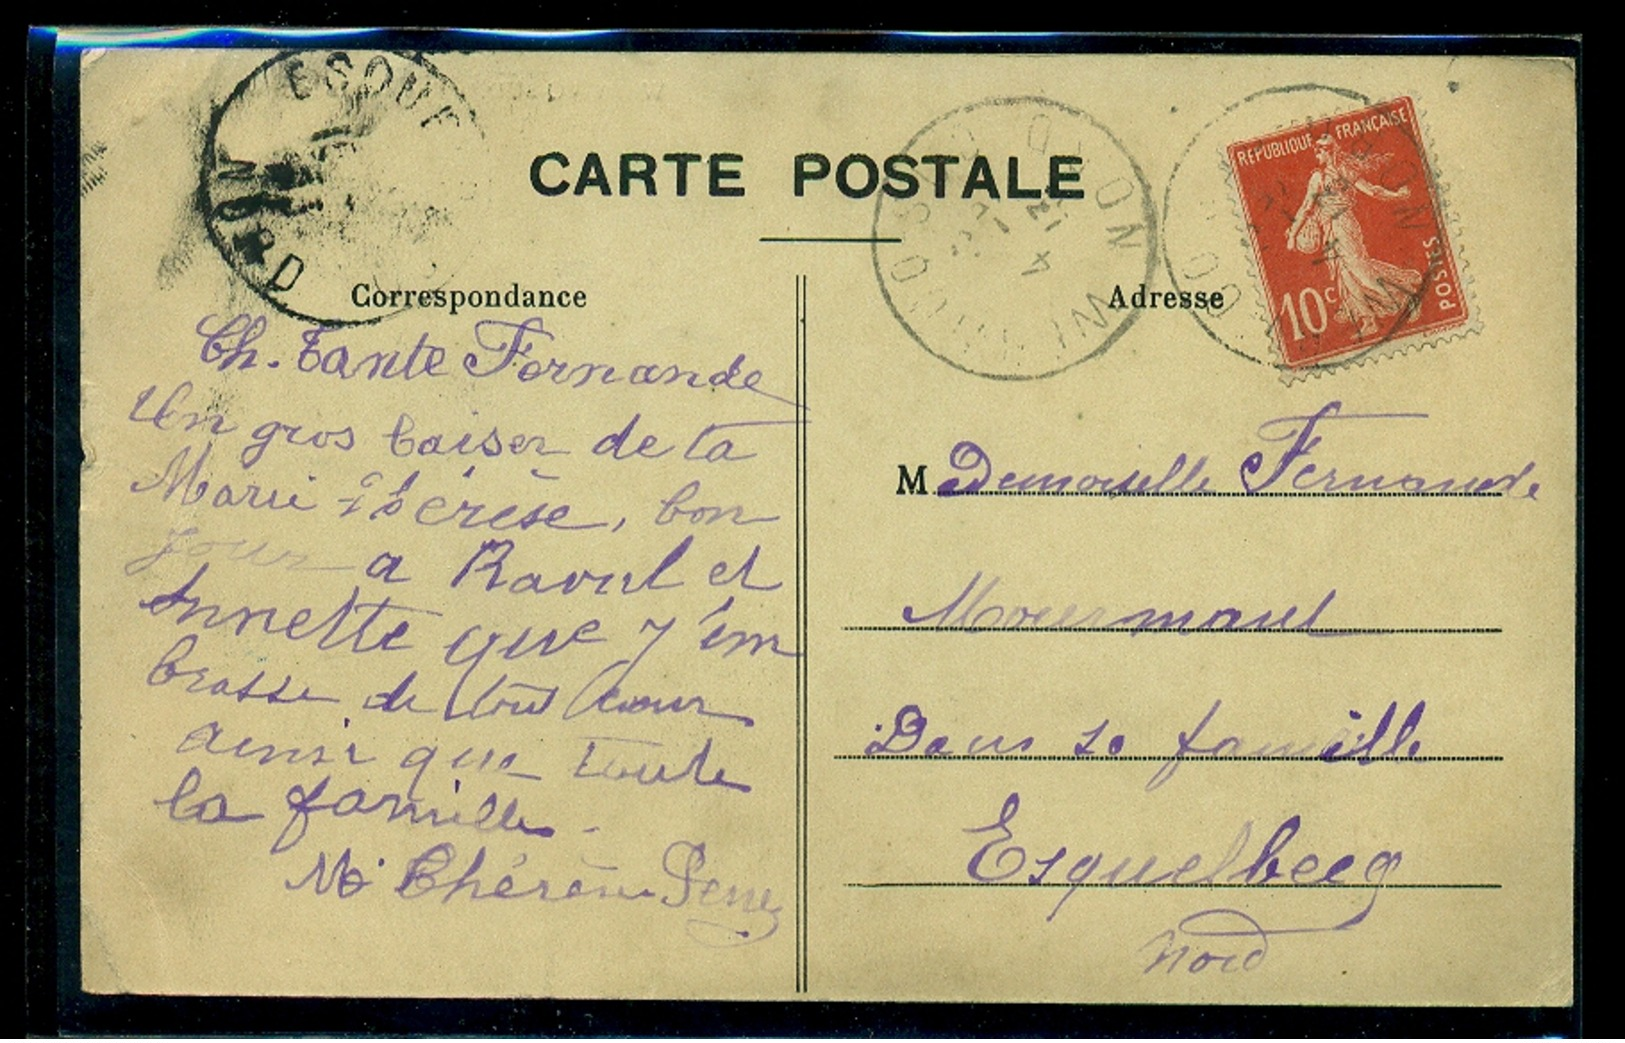 ESQUE
NORD
CARTE POSTALE
RÉPUBLIQUE FRANÇAISE
10c
POSTES
Correspondance
Ch. Tante Fernande
Un gros baiser de ta
Marie Thérèse, bon
jour a Raoul et
Annette que j'em
brasse de tout coeur
ainsi que toute
la famille.
M Thérèse
Adresse
M Demoiselle Fernande
Dans sa famille
Esquelbecq
Nord